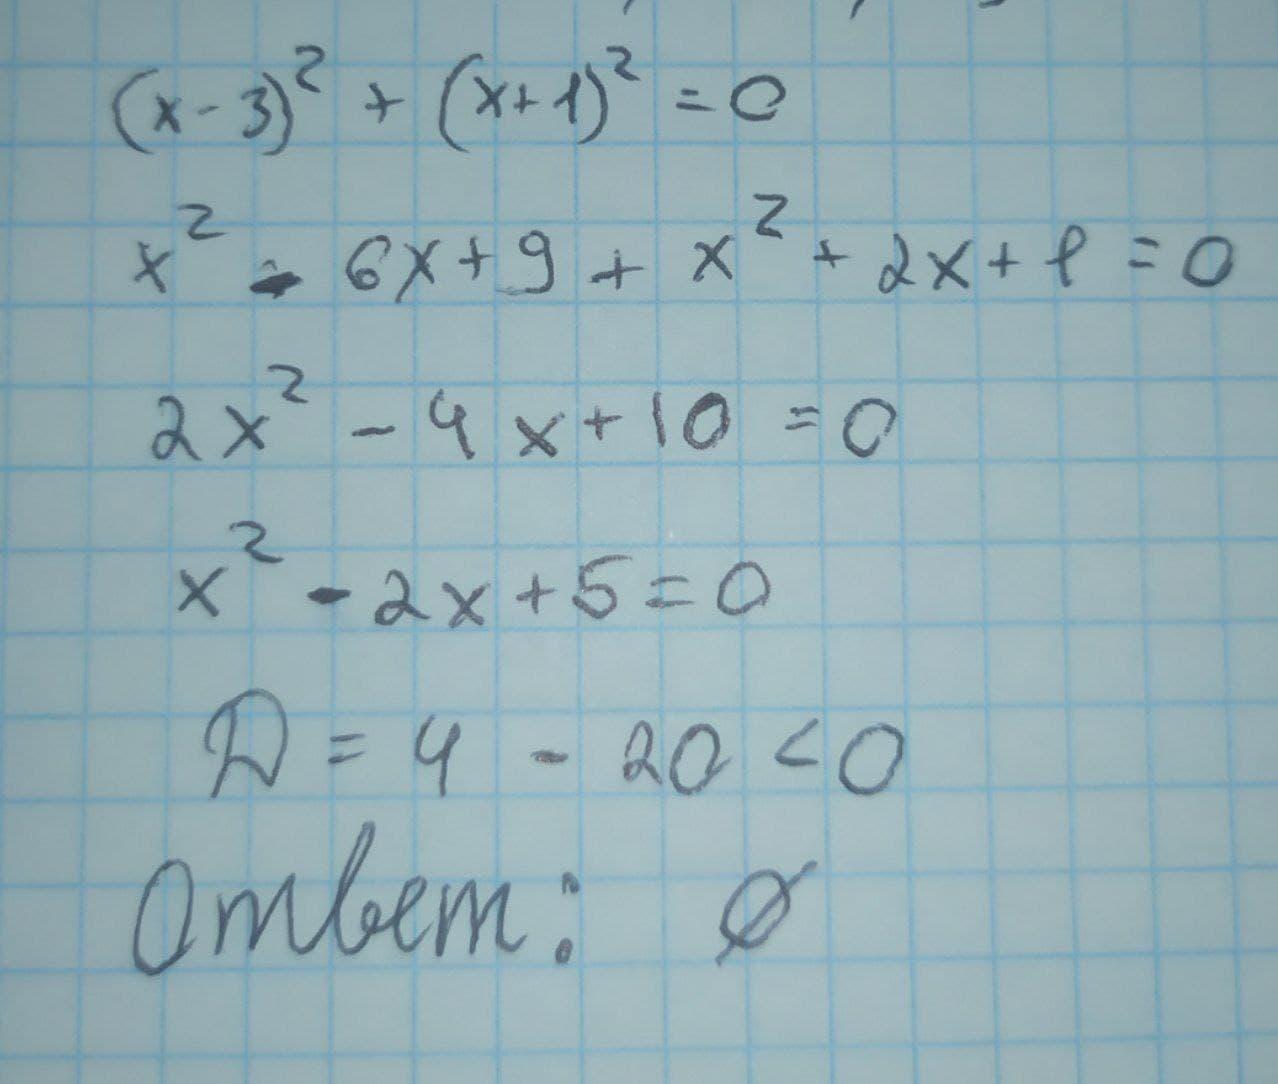 (x-3)² + (x+1)² = 0
x² - 6x + 9 + x² + 2x + 1 = 0
2x² - 4x + 10 = 0
x² - 2x + 5 = 0
D = 4 - 20 < 0
Ответ: ∅